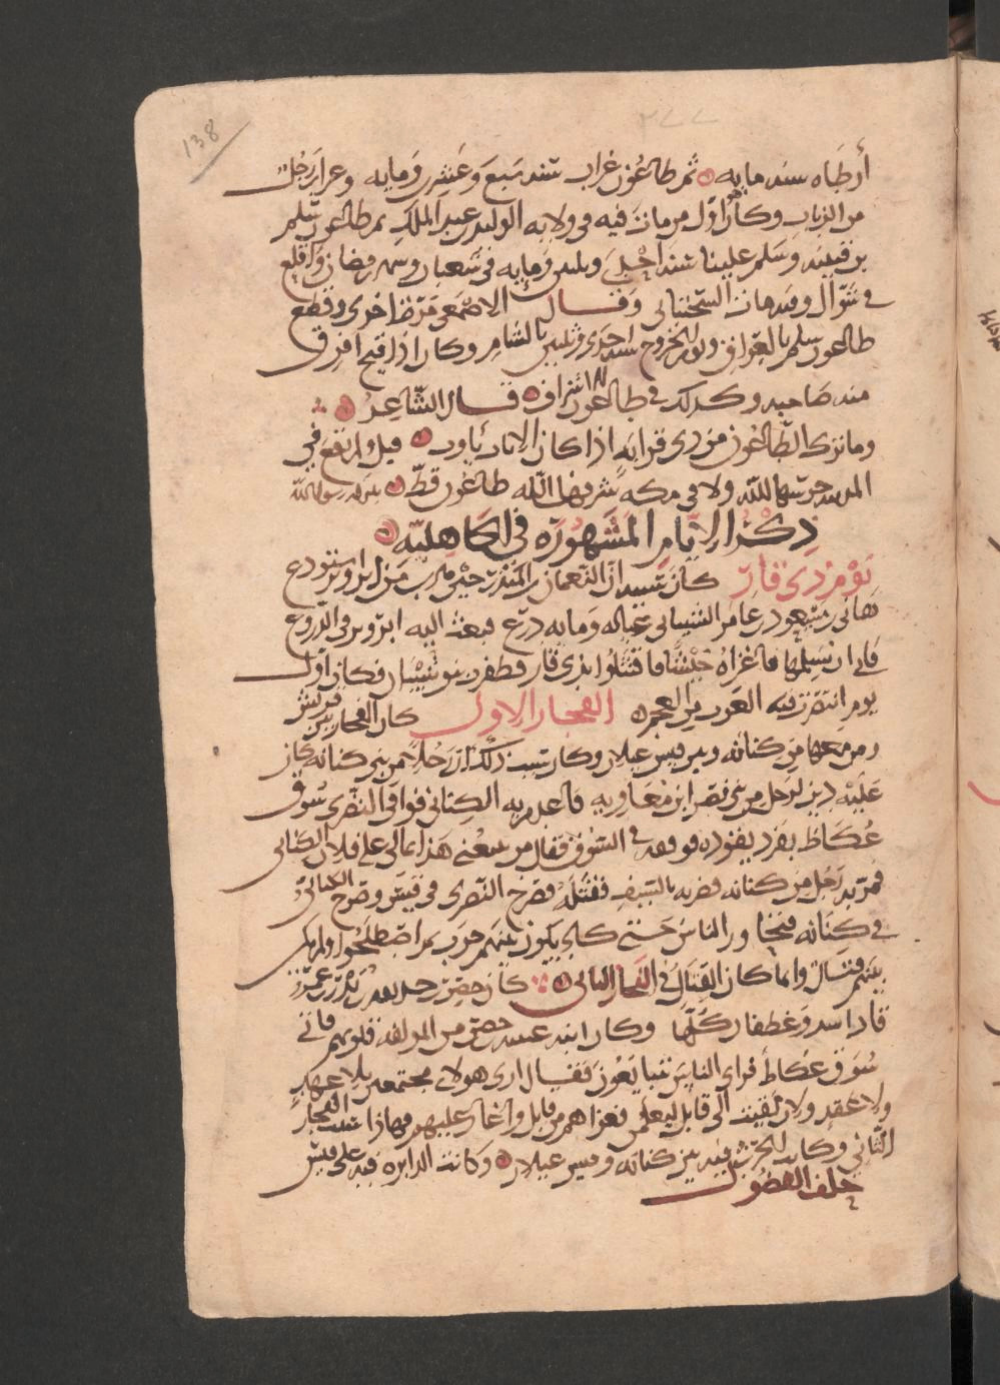 138
٢٧٧
أرطاه سنه مايه ثم طاعون غراب سنه سبع وعشرين ومايه وغراب رجل
من الرباب وكان اول من مات فيه في ولايه الوليد بن عبد الملك ثم طاعون سلم
بن قتيبه وسلم علينا سنه احدى وثلثين ومايه في شعبان وشهر رمضان واقلع
في شوال وفيه مات السختياني وقال الاصمعي مرة اخرى وقع
طاعون سلم بالعراق الخروج سنه احدى وثلثين بالشام وكان اذا قيح افرق
منه صاحبه وكذلك في طاعون شراف قال الشاعر
وما ترك الطاعون من ذي قرابه اذا كان الاياب يأوب قيل ولم يقع في
المدينه حرسها الله ولا في مكه شرفها الله طاعون قط
ذكر الايام المشهوره في الجاهليه
يوم ذي قار كان سببه ان النعمان بن المنذر حين هرب من ابرويز استودع
هاني بن مسعود بن عامر الشيباني عياله ومايه درع فبعث اليه ابرويز في الدروع
فابى ان يسلمها فاغزاه جيشا فاقتتلوا بذي قار فظفرت بنو شيبان فكان اول
يوم انتصرت فيه العرب من العجم الفجار الاول كان الفجار بين قريش
ومن معها من كنانه وبين قيس عيلان وكان سبب ذلك ان رجلا من بني كنانه كان
عليه دين لرجل من بني نصر ابن معاويه فاعدم به الكناني فوافى النصري سوق
عكاظ بقرد يقوده فوقف في السوق فقال من يبيعني هذا بمالي على فلان الكناني
فمر به رجل من كنانه فضربه بالسيف فقتله فصرخ النصري في قيس وصرخ الكناني
في كنانه فتجاور الناس حتى كاد يكون بينهم حرب ثم اصطلحوا ولم يكن
بينهم قتال وانما كان القتال في الفجار الثاني كان حصن بن حذيفه بن بدر
قاد اسد وغطفان كلها وكان ابنه عيينه بن حصن من المولفه قلوبهم فاتى
سوق عكاظ فراى الناس يتبايعون فقال ارى هولا مجتمعين بلا عهد
ولا عقد ولان بقيت الى قابل ليعلمن فغزاهم من قابل واغار عليهم فهاذا سبب الفجار
الثاني وكانت الحرب فيه بين كنانه وقيس عيلان وكانت الدايره فيه على قيس
حلف الفضول